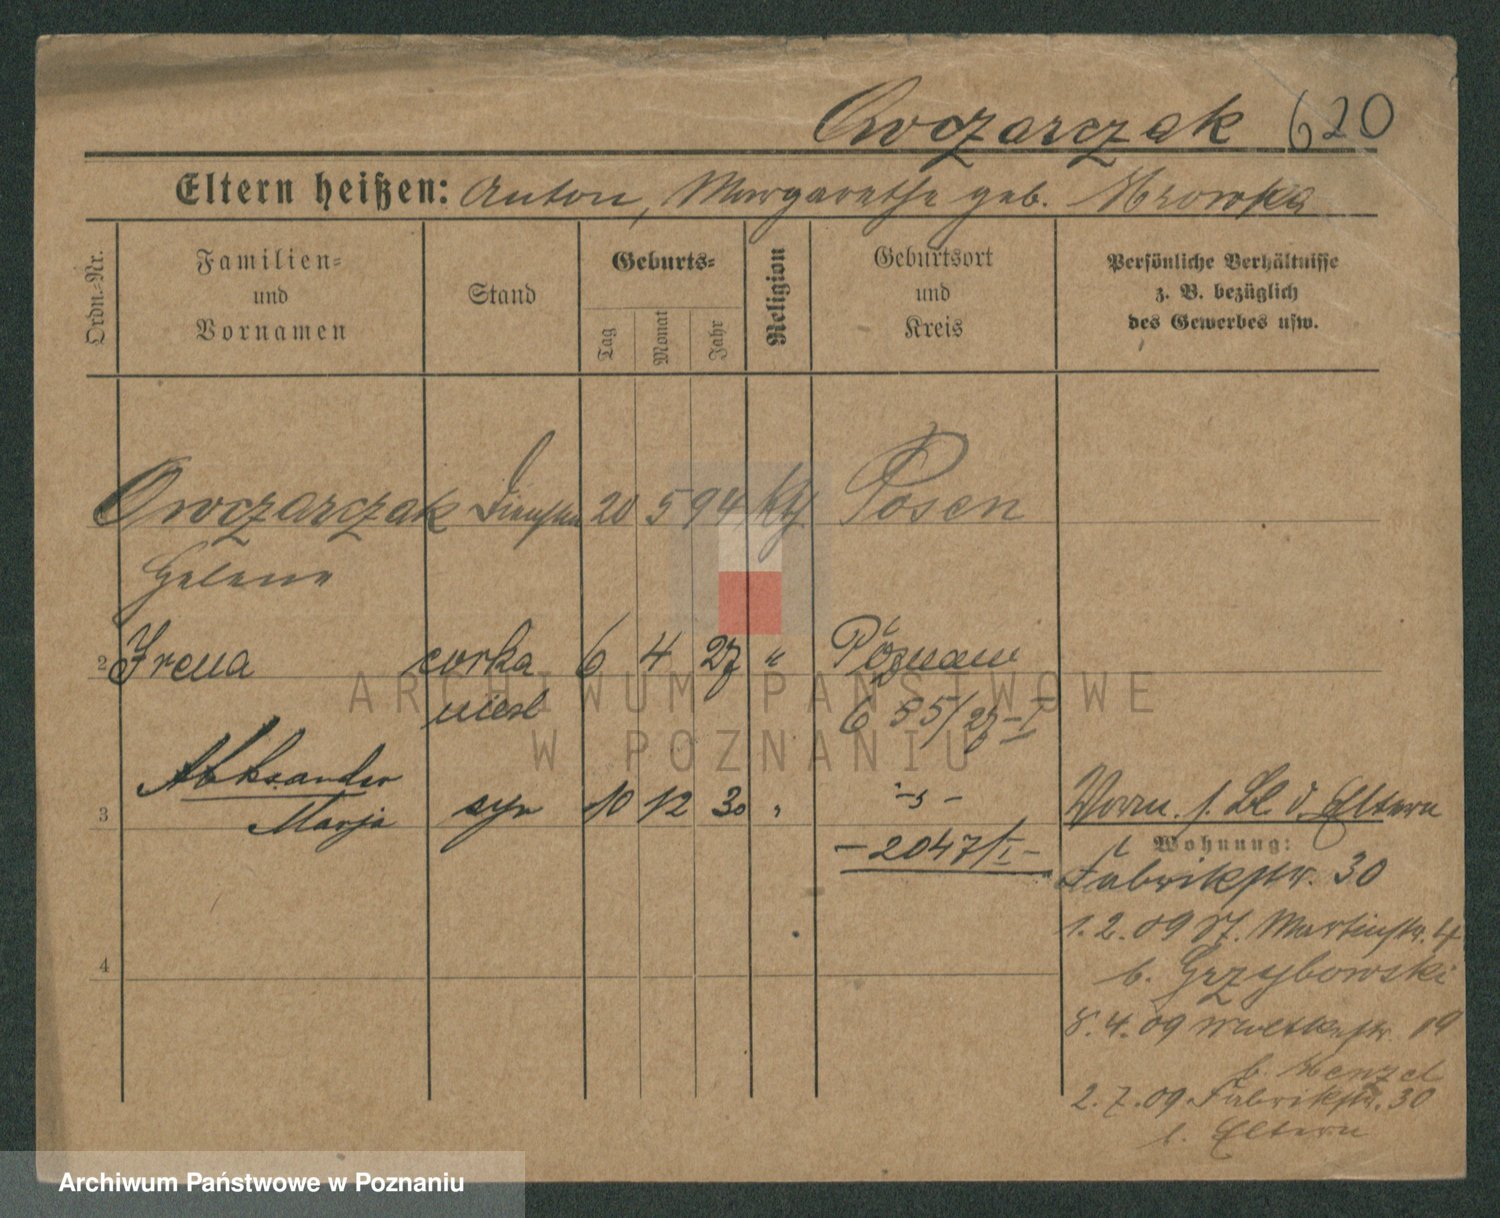 Owczarczak 620
Eltern heißen: Anton, Margarethe geb. Mrowka
Ordn.-Nr.
Familien-
und
Vornamen
Stand
Geburts-
Tag
Monat
Jahr
Religion
Geburtsort
und
Kreis
Persönliche Verhältnisse
z. B. bezüglich
des Gewerbes usw.
Owczarczak 20 5 94 kth Posen
Helene
2 Irena corka 6 4 27 " Poznan
niesl 655/27-I
Aleksander
3 Marja syn 10 12 30 " -"-
Vorm. s. Bl. d. Eltern
-2047/I-
Wohnung:
Fabrikstr. 30
1.2.09 St. Martinstr.
b. Grzybowski
8.4.09 Moltkestr. 19
b. Menzel
2.7.09 Fabrikstr. 30
b. Eltern
ARCHIWUM PAŃSTWOWE
W POZNANIU
Archiwum Państwowe w Poznaniu